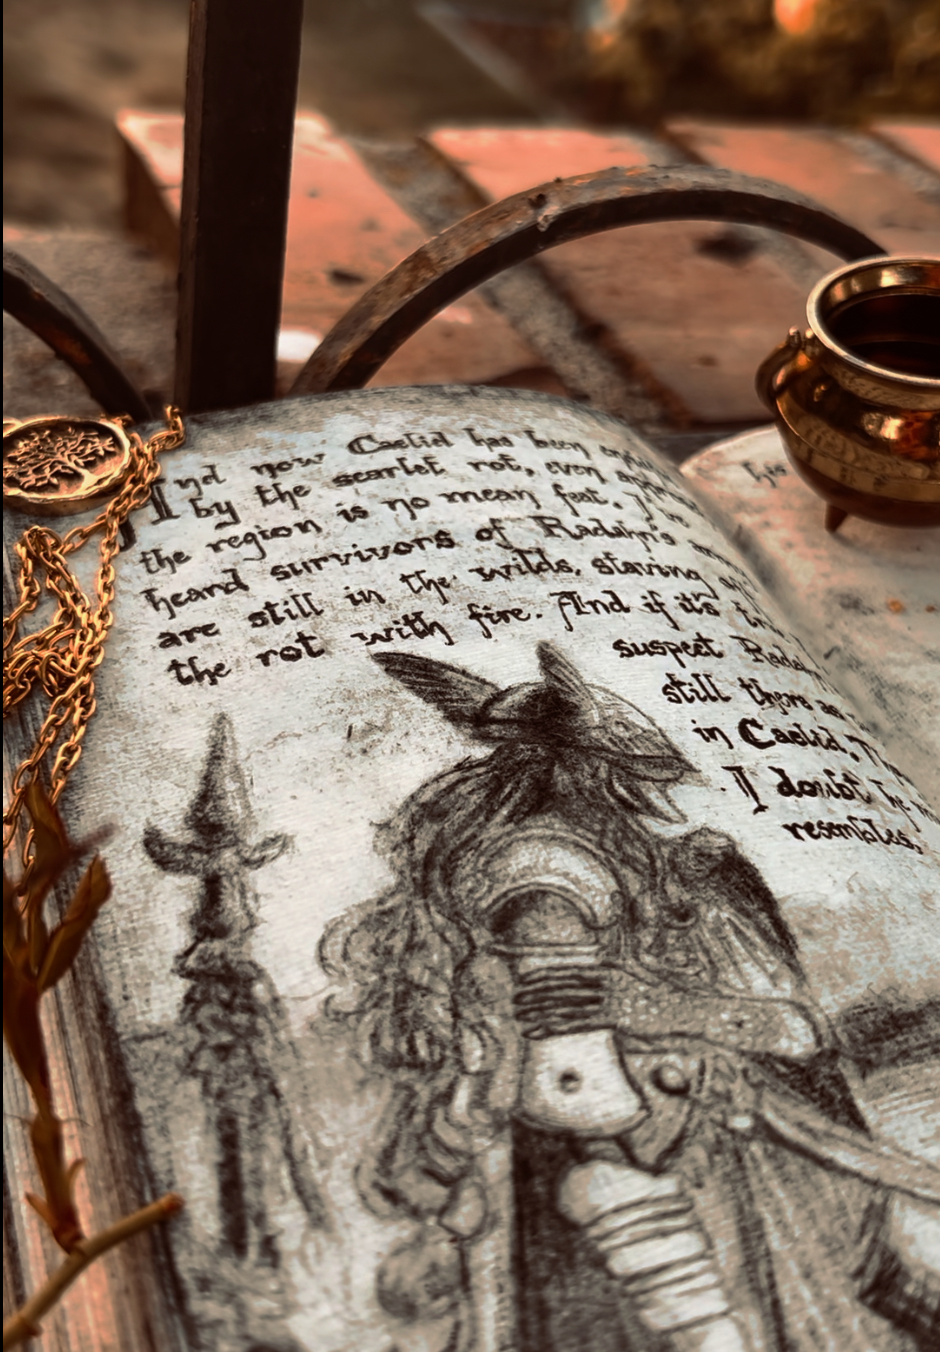 And now Caelid has been
by the scarlet rot, even
the region is no mean feat. I've
heard survivors of Radahn's
are still in the wilds, staving
the rot with fire. And if it's
suspect
still there
in Caelid.
I doubt he
resembles,
his